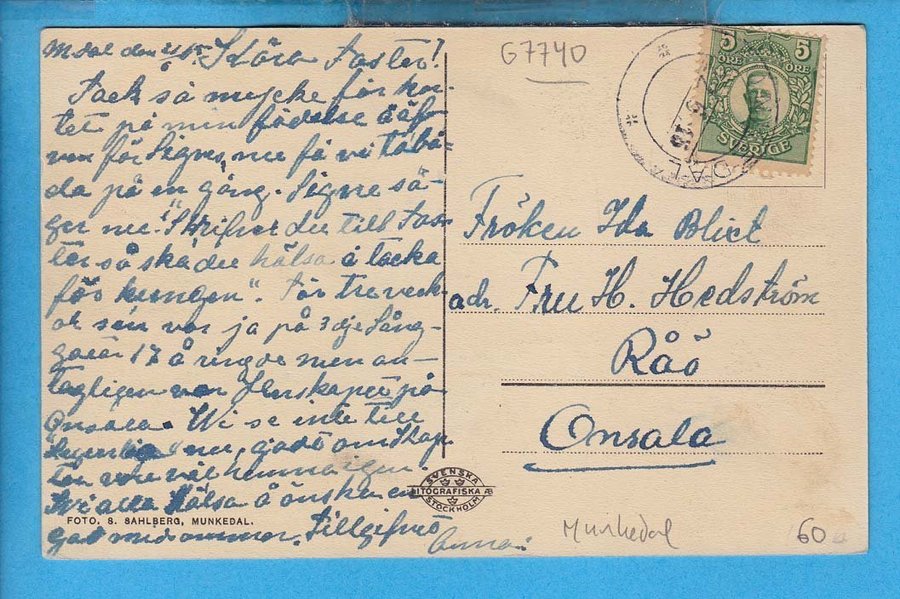 M.dal den 21/6 Kära Faster!
Tack så mycke för kor-
tet på min födelse å äf-
ven för Signes, nu få vi tabå-
da på en gång. Signe sä-
ger nu: "Skrifver du till Fas-
ter så ska du hälsa å tacka
för kungen". För tre veck-
or sen var ja på 3dje Lång-
gatan 17 å ringde men an-
tagligen var på
Onsala. Vi se inte till
nu,
Vi alla hälsa å önska en
god midsommar. Tillgifne
Anna
FOTO. S. SAHLBERG, MUNKEDAL.
SVENSKA
LITOGRAFISKA AB
STOCKHOLM
G7740
5 5
ÖRE ÖRE
SVERIGE
DAL
Fröken Ida Blixt
adr. Fru H. Hedström
Råö
Onsala
Munkedal
60